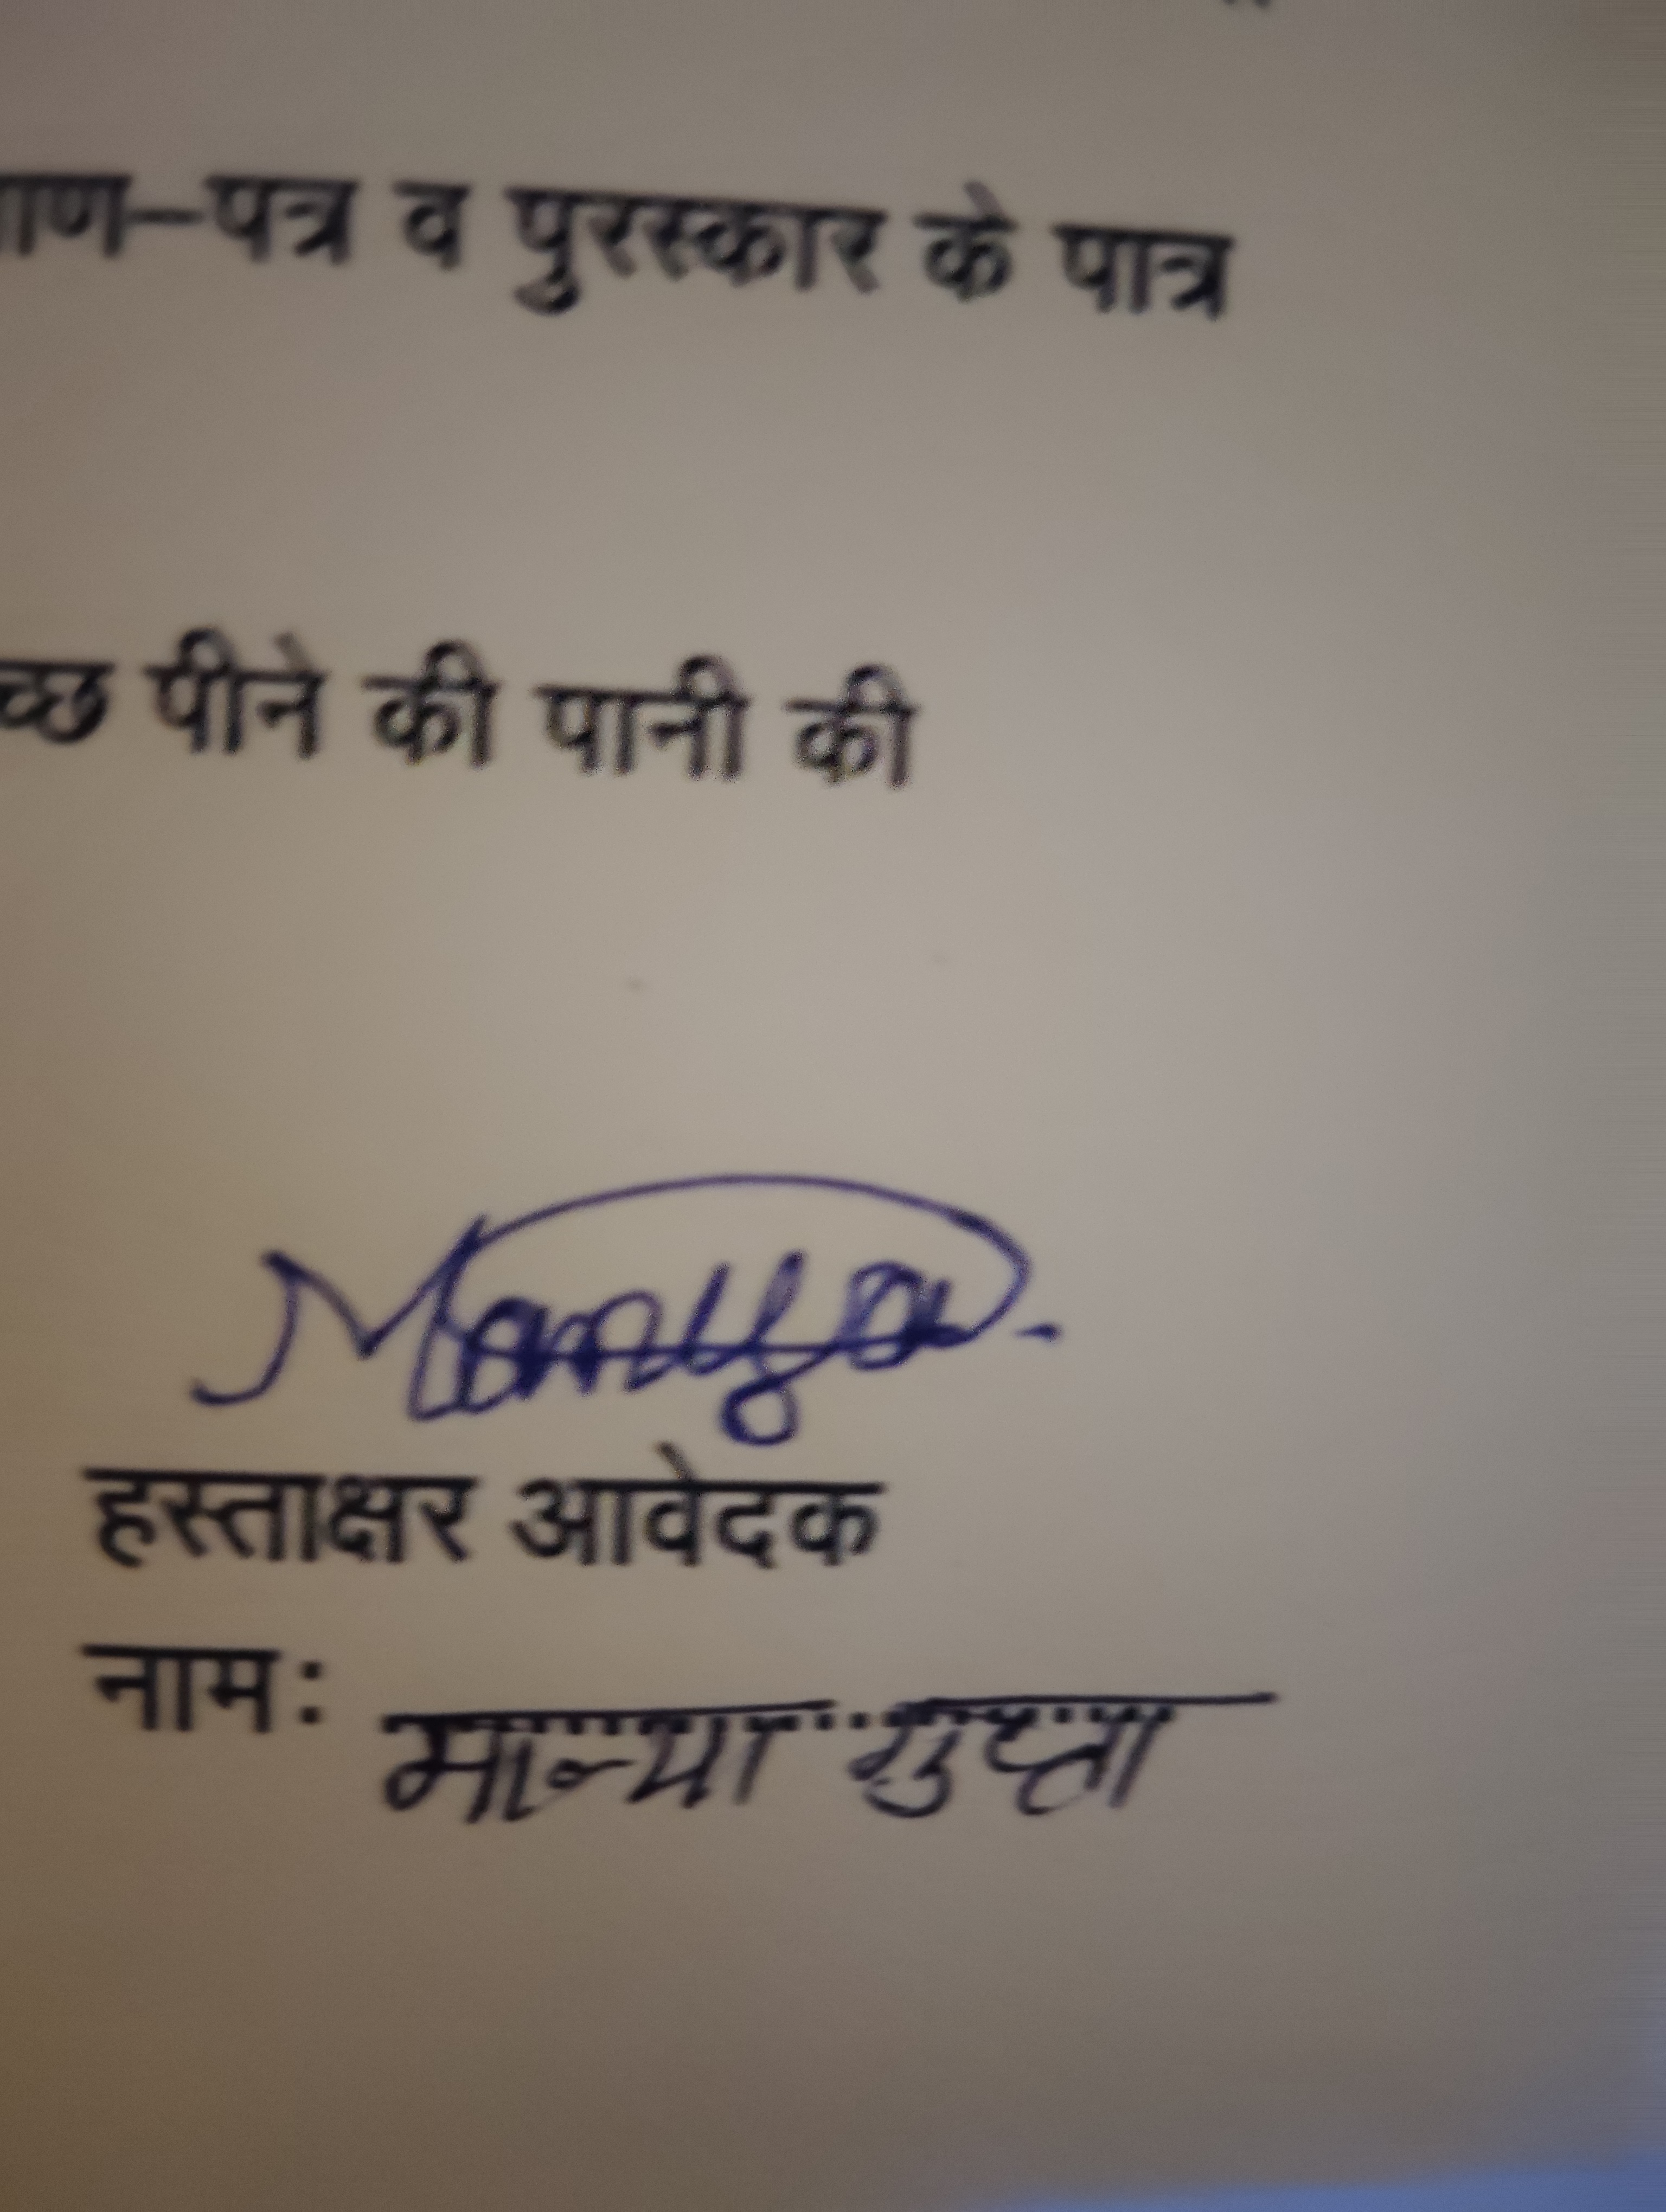 पत्र व पुरस्कार के पात्र
पीने की पानी की
Manya
हस्ताक्षर आवेदक
नामः मान्या गुप्ता